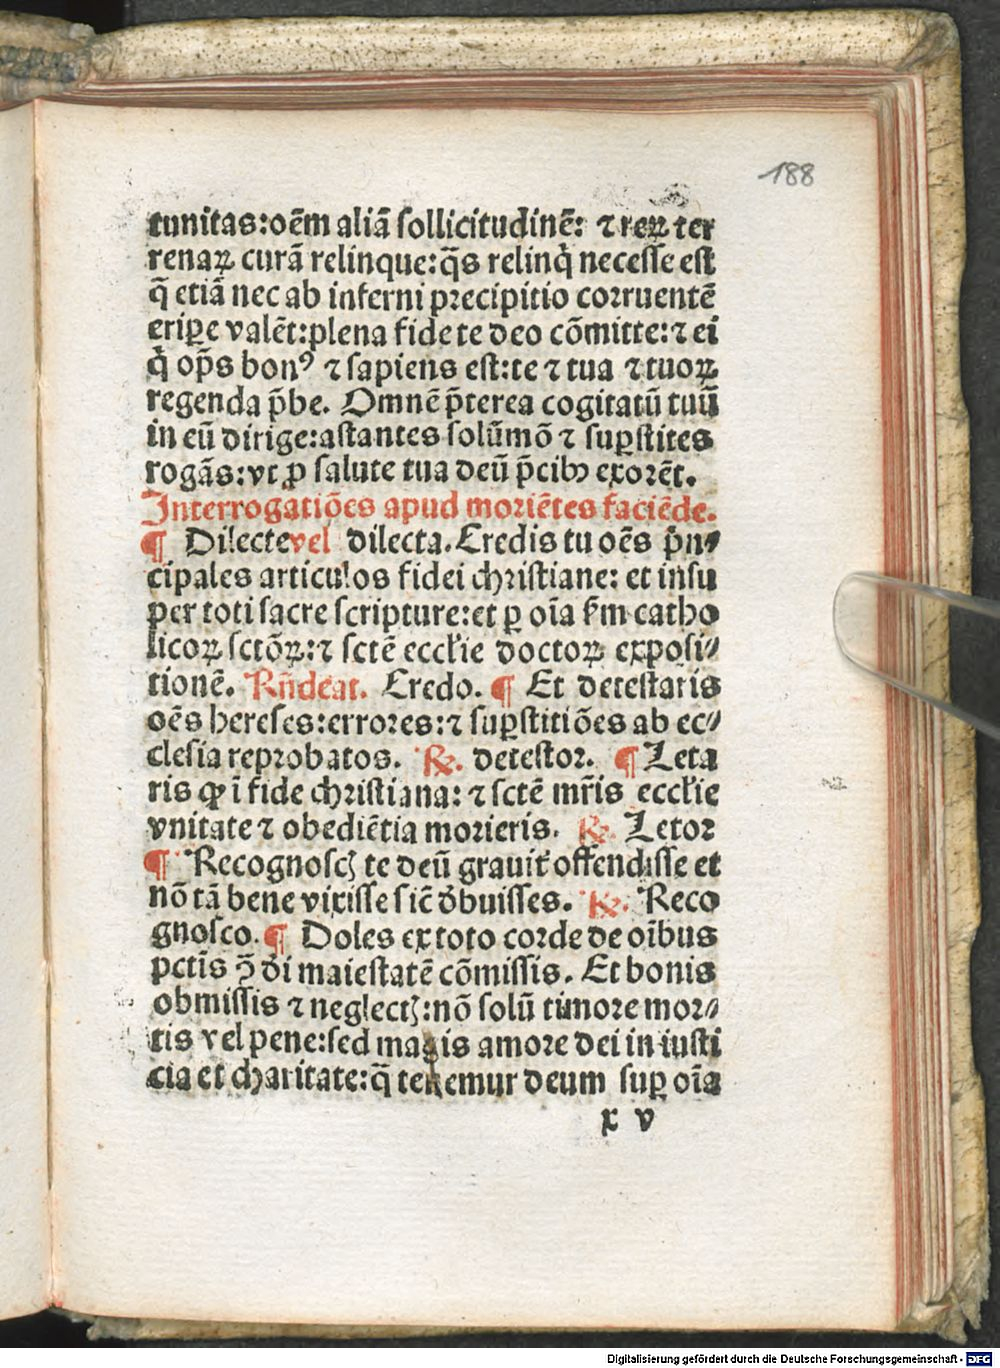 188
tunitas:oēm aliã ſollicitudinē: ⁊ reꝝ ter
renaꝝ curã relinque:q̄s relinq̇ neceſſe eſt
q̄ etiã nec ab inferni precipitio corruentē
eriꝑe valēt:plena fide te deo cōmitte:⁊ ei
q̇ op̄s bonꝰ ⁊ ſapiens eſt:te ⁊ tua ⁊ tuoꝝ
regenda p̄be. Omnē p̄terea cogitatū tuū
in eū dirige:aſtantes ſolūmō ⁊ ſuꝑſtites
rogãs:vt ꝓ ſalute tua deū p̄cibꝫ exorēt.
Interrogatiōes apud moriētes faciēde.
¶ Dilecte vel dilecta. Credis tu oēs p̄n⸗
cipales articulos fidei chriſtiane: et inſu
per toti ſacre ſcripture:et ꝑ oīa ẜm catho
licoꝝ ſctōꝝ:⁊ ſctē eccłie doctoꝝ expoſi⸗
tionē. Rñdeat. Credo. ¶ Et deteſtaris
oēs hereſes:errores:⁊ ſuꝑſtitiōes ab ec⸗
cleſia reprobatos. ℞. deteſtor. ¶ Leta
ris ꝙ ī fide chriſtiana: ⁊ ſctē mr̄is eccłie
vnitate ⁊ obediētia morieris. ℞. Letor
¶ Recognoſcꝭ te deū grauit̉ offendiſſe et
nō tã bene vixiſſe ſic̄ d̓buiſſes. ℞. Reco
gnoſco. ¶ Doles ex toto corde de oībus
pctīs ꝯ̄ di maieſtatē cōmiſſis. Et bonis
obmiſſis ⁊ neglectꝭ:nō ſolū timore mor⸗
tis vel pene:ſed magis amore dei in iuſti
cia et charitate:q̄ tenemur deum ſuꝑ oīa
x v
Digitalisierung gefördert durch die Deutsche Forschungsgemeinschaft - DFG